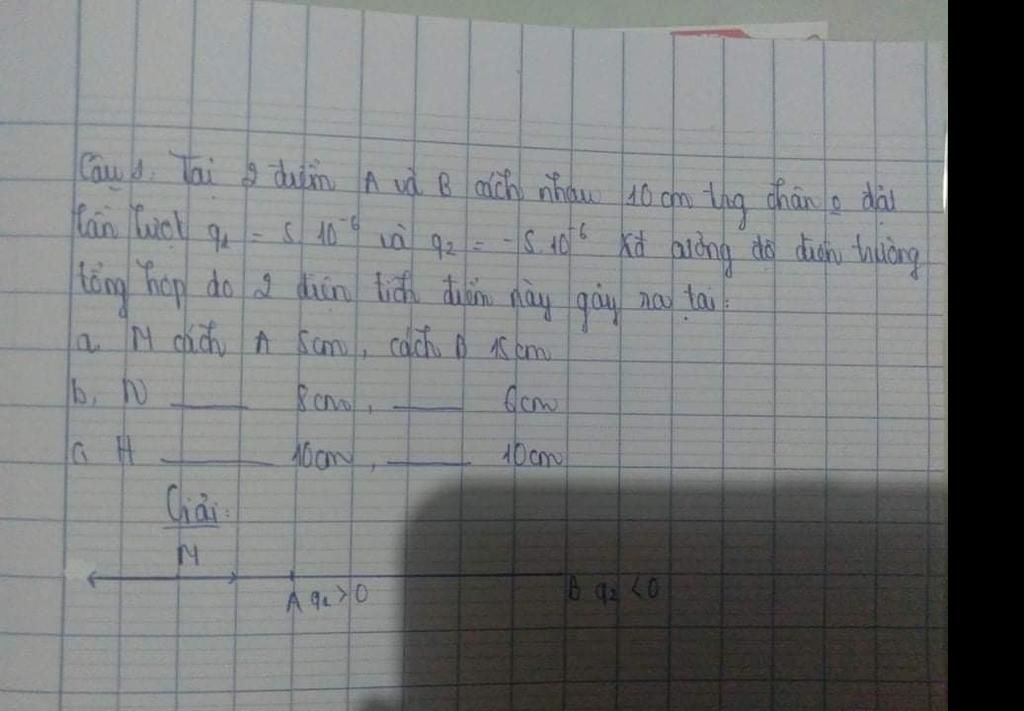 Câu 1. Tại 2 điểm A và B cách nhau 10 cm trg chân o đặt
lần lượt q₁ = 5.10⁻⁶ và q₂ = -5.10⁻⁶ Xđ cường độ điện trường
tổng hợp do 2 điện tích điểm này gây ra tại:
a. M cách A 5cm, cách B 15cm
b. N ____ 8cm, ____ 6cm
c. H ____ 10cm, ____ 10cm
Giải:
M
A q₁>0 B q₂<0